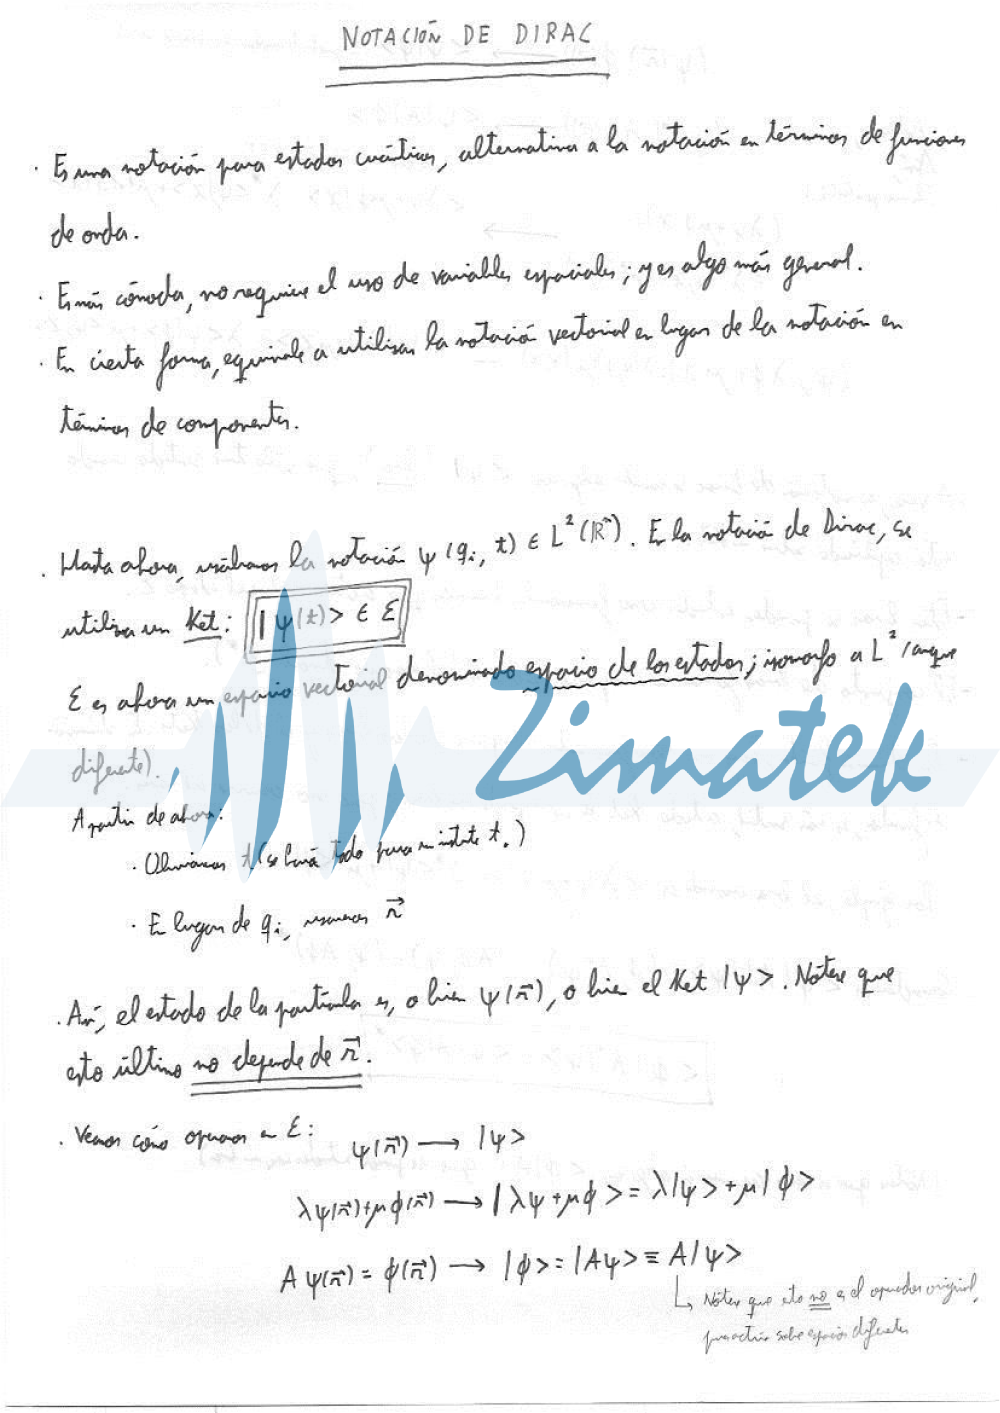 NOTACIÓN DE DIRAC
· Es una notación para estados cuánticos, alternativa a la notación en términos de funciones
de onda.
· Es más cómoda, no requiere el uso de variables espaciales; y es algo más general.
· En cierta forma, equivale a utilizar la notación vectorial en lugar de la notación en
términos de componentes.
· Hasta ahora, usábamos la notación ψ(qᵢ, t) ∈ L²(ℝⁿ). En la notación de Dirac, se
utiliza un Ket: |ψ(t)> ∈ Ɛ
Ɛ es ahora un espacio vectorial denominado espacio de los estados; isomorfo a L² (aunque
diferente).
A partir de ahora:
· Obviamos t (se hará todo para un instante t₀)
· En lugar de qᵢ, usaremos r⃗
· Así, el estado de la partícula es, o bien ψ(r⃗), o bien el Ket |ψ>. Nótese que
esto último no depende de r⃗.
· Vemos cómo operamos en Ɛ:
ψ(r⃗) → |ψ>
λψ(r⃗)+μϕ(r⃗) → |λψ+μϕ> = λ|ψ>+μ|ϕ>
Aψ(r⃗) = ϕ(r⃗) → |ϕ> = |Aψ> ≡ A|ψ>
↳ Nótese que éste no es el operador original,
pues actúa sobre espacios diferentes
Zimatek